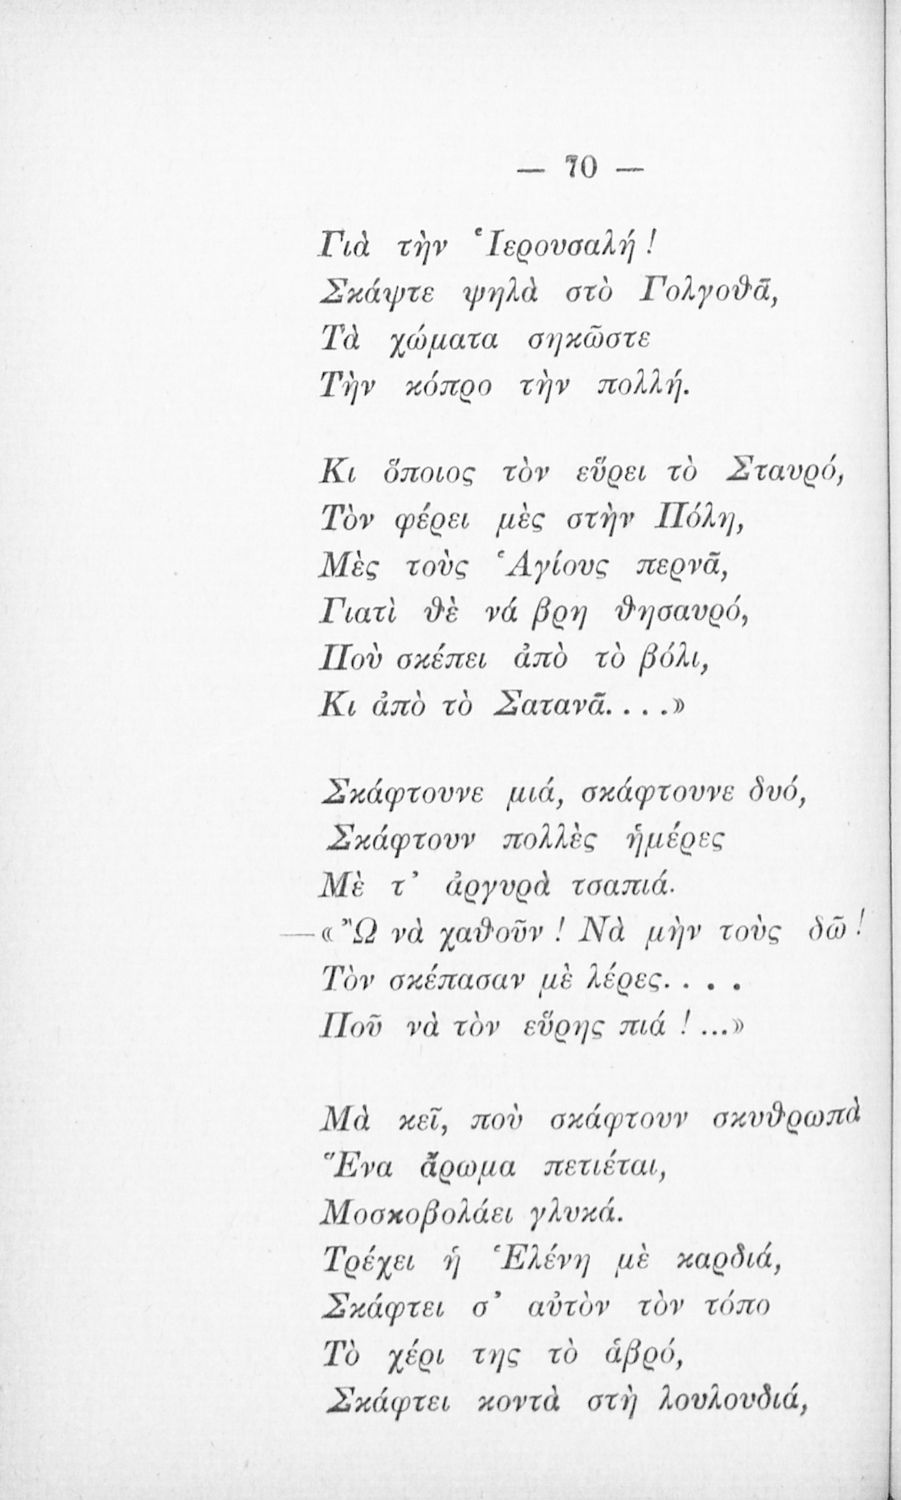 — 70 —
Γιὰ τὴν Ἱερουσαλή!
Σκάψτε ψηλὰ στὸ Γολγοθᾶ,
Τὰ χώματα σηκῶστε
Τὴν κόπρο τὴν πολλή.
Κι ὅποιος τὸν εὕρει τὸ Σταυρό,
Τὸν φέρει μὲς στὴν Πόλη,
Μὲς τοὺς Ἁγίους περνᾶ,
Γιατὶ θὲ νά βρη θησαυρό,
Ποὺ σκέπει ἀπὸ τὸ βόλι,
Κι ἀπὸ τὸ Σατανᾶ. . . .»
Σκάφτουνε μιά, σκάφτουνε δυό,
Σκάφτουν πολλὲς ἡμέρες
Μὲ τ᾽ ἀργυρὰ τσαπιά.
—«Ὢ νὰ χαθοῦν! Νὰ μὴν τοὺς δῶ!
Τὸν σκέπασαν μὲ λέρες. . . .
Ποῦ νὰ τὸν εὕρης πιά!...»
Μὰ κεῖ, ποὺ σκάφτουν σκυθρωπὰ
Ἕνα ἄρωμα πετιέται,
Μοσκοβολάει γλυκά.
Τρέχει ἡ Ἑλένη μὲ καρδιά,
Σκάφτει σ᾽ αὐτὸν τὸν τόπο
Τὸ χέρι της τὸ ἁβρό,
Σκάφτει κοντὰ στὴ λουλουδιά,